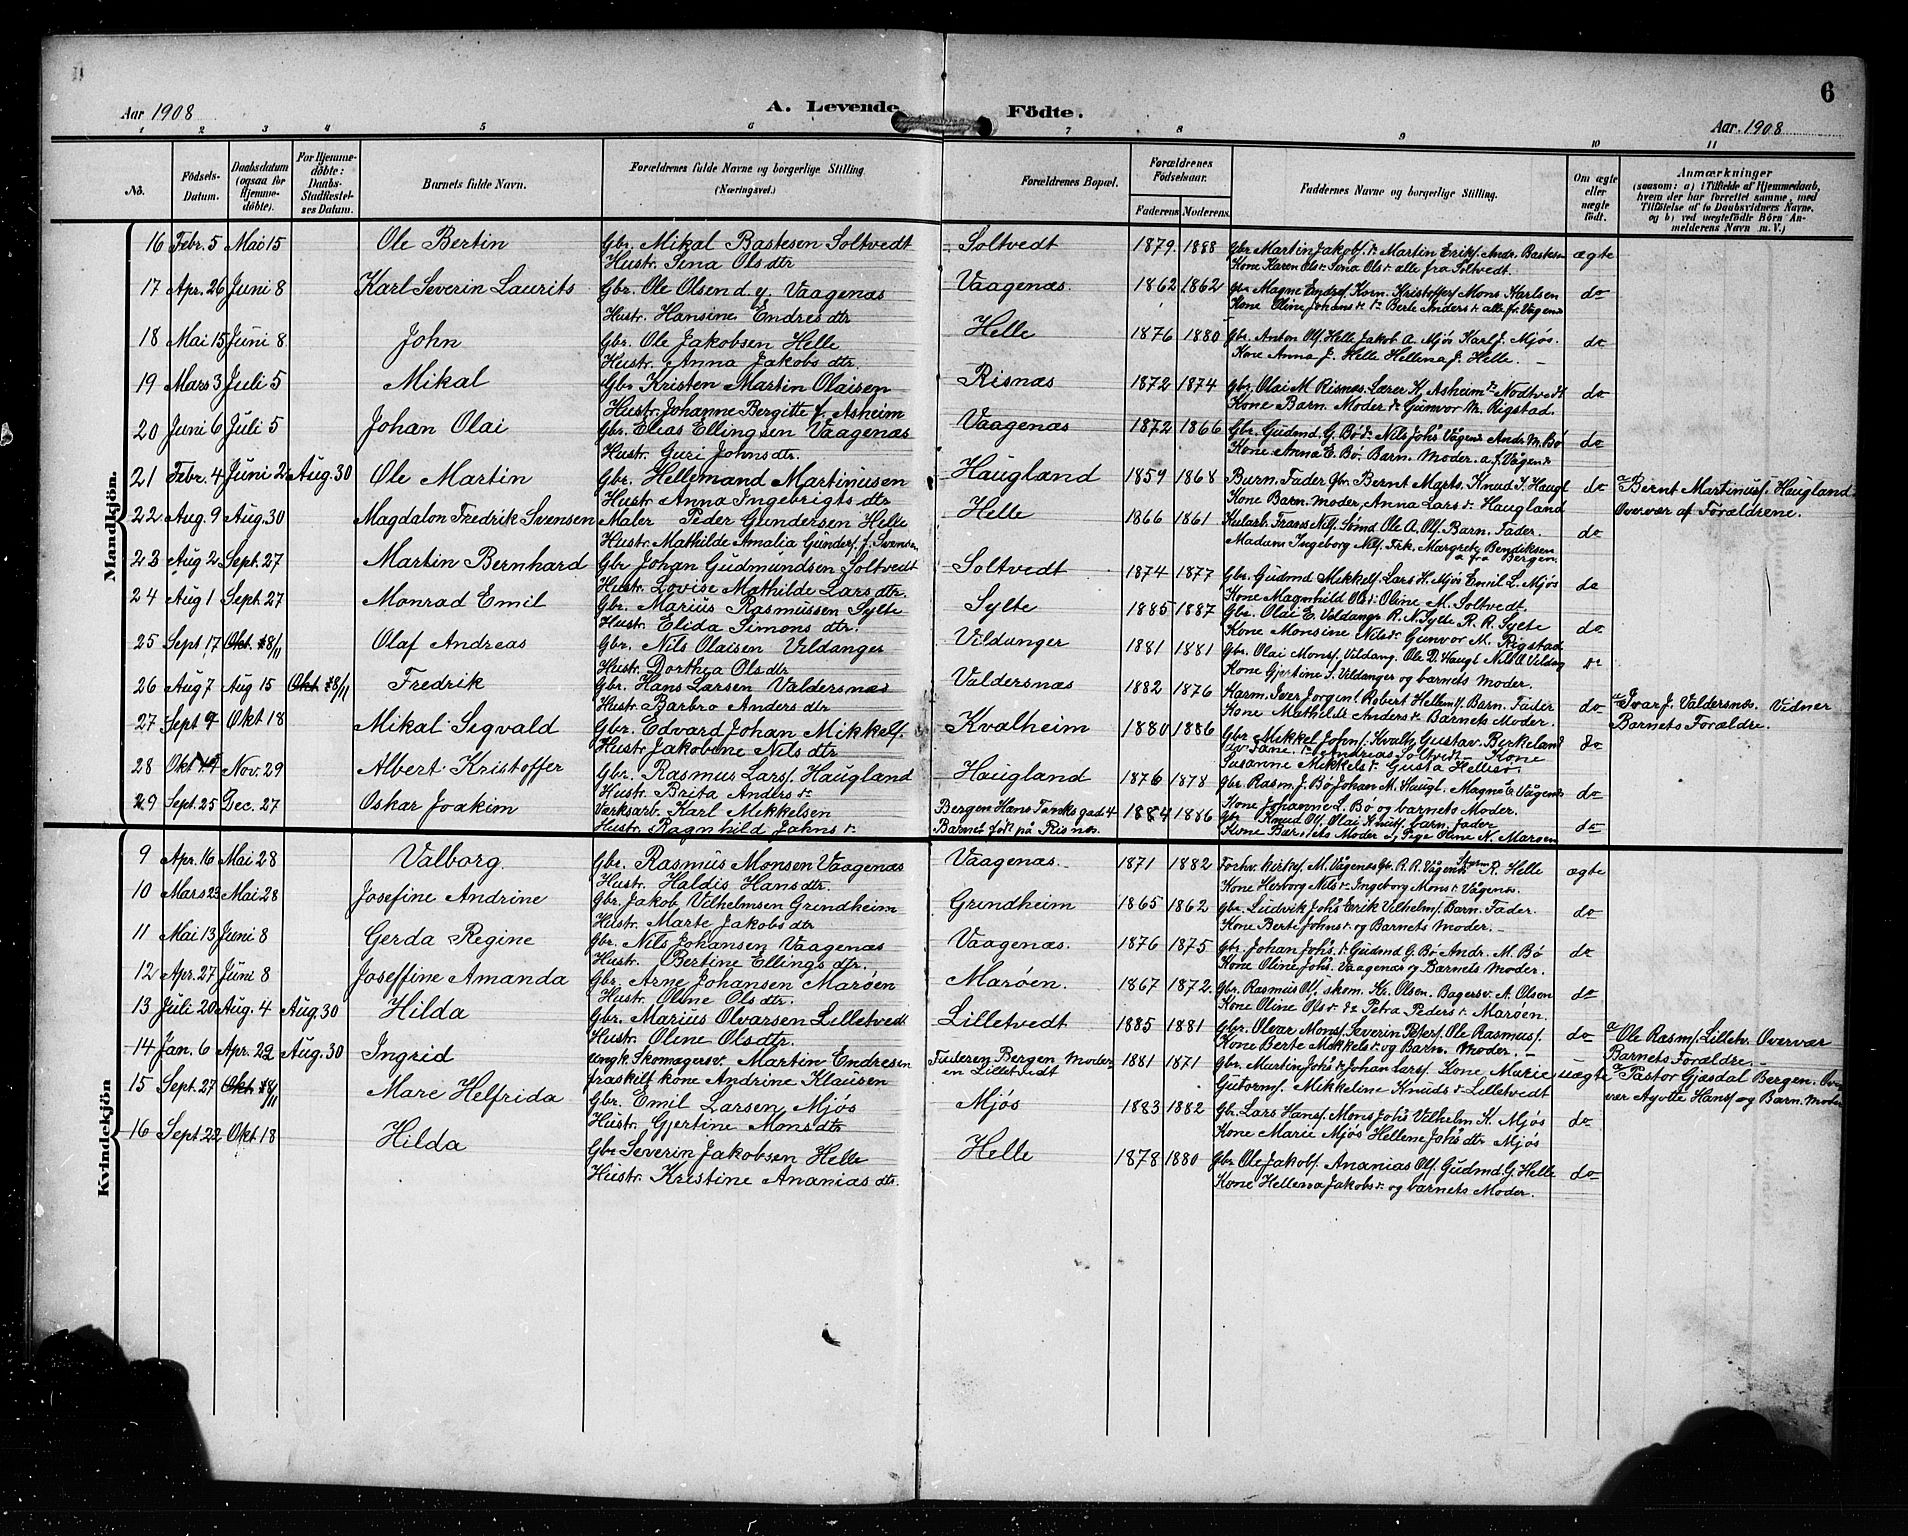 6
Aar 1908
A. Levende Födte.
Aar. 1908
1 2 3 4 5 6 7 8 9 10 11
No. Födsels-Datum. Daabsdatum (ogsaa for Hjemmedöbte). For Hjemmedöbte: Daabs-Stadfæstelses Datum. Barnets fulde Navn. Forældrenes fulde Navne og borgerlige Stilling. (Næringsvei.) Forældrenes Bopæl. Forældrenes Födselsaar. Faderens Moderens. Faddernes Navne og borgerlige Stilling. Om ægte eller uægte födt. Anmærkninger (saasom: a) i Tilfælde af Hjemmedaab, hvem der har forrettet samme, med Tilföielse af to Daabsvidners Navne, og b) ved uægtefödte Börn Anmelderens Navn m. V.)
Mandkjön.
16 Febr. 5 Mai 15 Ole Bertin Gbr. Mikal Bastesen Soltvedt Soltvedt 1879 1888 Gbr Martin Jakobs. Martin Eriks. Andr. Bastesen ægte
Hustr. Sina Olsdtr Kone Karen Ols d. Sena Ols d. alle fra Soltvedt.
17 Apr. 26 Juni 8 Karl Severin Laurits Gbr. Ole Olsen d. y. Vaagenæs Vaagenæs. 1862 1862 Gbr Magne Endres. Korn. Kristoffers. Mons Karlsen do
Hustr. Hansine Endresdtr Kone Oline Johans d. Berte Anders d. alle fr. Vågenæs
18 Mai 15 Juni 8 John Gbr. Ole Jakobsen Helle Helle 1876 1880 Gbr. Anton Ols. Helle Jakob A. Mjøs Karl J. Mjøs. do
Hustr. Anna Jakobs dtr. Kone Anna J. Helle Hellena J. Helle.
19 Mars 3 Juli 5 Mikal Gbr. Kristen Martin Olaisen Risnæs 1872 1874 Gbr. Olai M. Risnæs. Lærer K. Asheim Nodtvedt do
Hustr. Johanne Bergitte f. Asheim Kone Barn. Moder Gunvor M. Rigstad.
20 Juni 6 Juli 5 Johan Olai Gbr. Elias Ellingsen Vaagenæs Vaagenæs 1872 1866 Gbr. Gudmd G. Bø Nils Johs Vågen. Andr. M. Bø do
Hustr. Guri Johnsdtr. Kone Anna E. Bø. Barn. Moder.
21 Febr. 4 Juni 2 Aug. 30 Ole Martin Gbr. Hellemand Martinusen Haugland 1859 1868 Barn. Fader Gbr. Bernt Marts. Knud S. Haugl do Bernt Martinus. Haugland
Hustr Anna Ingebrigts dtr Kone Barn. Moder, Anna Lars d. Haugland Overvær af Forældrene.
22 Aug. 9 Aug. 30 Magdalon Fredrik Svensen Maler Peder Gundersen Helle Helle 1866 1861 Ole A. Ols. Barn. Fader. do
Hustr. Mathilde Amalia Gunders. f. Svensen Madam Ingeborg Nils. Frk. Margrete Bendiksen a. fra Bergen.
23 Aug 2 Sept. 27 Martin Bernhard Gbr Johan Gudmundsen Soltvedt Soltvedt 1874 1877 Gbr. Gudmd Mikkels. Lars H. Mjøs Emil L. Mjøs do
Hustr. Lovise Mathilde Lars dtr. Kone Magnhild Ols d. Oline M. Soltvedt.
24 Aug 1 Sept. 27 Monrad Emil Gbr. Marius Rasmussen Sylte Sylte 1885 1887 Gbr. Olai E. Vildangr R. N. Sylte R. R. Sylte do
Hustr. Elida Simons dtr. Kone Monsine Nils d. Gunvor M. Rigstad
25 Sept 17 Okt. 18 8/11 Olaf Andreas Gbr. Nils Olaisen Vildanger Vildanger 1881 1881 Gbr. Olai Mons. Vildang. Ole D. Haugl Nils A Vildang do
Hustr. Dorthea Olsdtr Kone Gjertine S. Vildanger og barnets Moder.
26 Aug 7 Aug 15 Okt 18 8/11 Fredrik Gbr. Hans Larsen Valdersnæs Valdersnæs 1882 1876 Iver Jorgens. Robert Hellems. Barn. Fader do Ivar J. Valdersnæs. Vidner
Hustr Barbro Anders dtr Kone Mathilde Anders d. Barnets Moder. Barnets Forældre.
27 Sept 9 Okt 18 Mikal Sigvald Gbr. Edvard Johan Mikkels. Kvalheim 1880 1886 Gbr. Mikkel Johns. Kvalh. Gustav Birkeland do
Hustr Jakobine Nils dtr Andreas Soltvedt Kone Susanne Mikkels d. Gusta Hellesø.
28 Okt Nov. 29 Albert Kristoffer Gbr. Rasmus Lars. Haugland Haugland 1876 1878 Gbr. Rasm. J. Bø Johan M. Haugl. Magne E. Vågenæs do
Hustr. Brita Anders d. Kone Johanne L. Bø og barnets Moder.
29 Sept. 25 Dec. 27 Oskar Joakim Værksarb. Karl Mikkelsen Bergen Hans Tanks gad 4 1884 1886 Gbr Knud Ols. Olai Knuts. barn. Fader do
Hustr. Ragnhild Jahns d. Barnet født på Risnæs. Kone Barnets Moder, Pige Oline N. Marøen
Kvindekjön
9 Apr. 16 Mai 28 Valborg. Gbr. Rasmus Monsen Vaagenæs Vaagenæs. 1871 1882 Forhv. kirkes. M. Vågenæs Gbr. R. R. Vågenæs R. Helle ægte
Hustr. Haldis Hans dtr. Kone Herborg Nils d. Ingeborg Mons d. Vågenæs.
10 Mars 23 Mai 28 Josefine Andrine Gbr. Jakob Vilhelmsen Grindheim Grindheim 1865 1862 Gbr. Ludvik Johs Erik Vilhelms. Barn. Fader. do
Hustr. Marte Jakobs dtr Kone Berte Johns d. og Barnets Moder.
11 Mai 13 Juni 8 Gerda Regine Gbr. Nils Johansen Vaagenæs Vaagenæs. 1876 1875 Gbr. Johan Johs. Gudmd G. Bø Andr. M. Bø do
Hustr. Bertine Ellings dtr. Kone Oline Johs. Vaagenæs og Barnets Moder.
12 Apr. 27 Juni 8 Joseffine Amanda Gbr. Arne Johansen Marøen Marøen. 1867 1872. Gbr. Rasmus Ols. skom. Kr. Olsen. Bagersv. A. Olsen do
Hustr. Oline Olsdtr. Kone Oline Ols d. Petra Peders d. Marøen.
13 Juli 20 Aug. 4 Aug. 30 Hilda Gbr. Marius Olvarsen Lilletvedt Lilletvedt 1885 1881 Gbr. Olvar Mons. Severin Peters. Ole Rasmus. do Ole Rasm. Lilletv. Overvær
Hustr. Oline Olsdtr. Kone Berte Mikkels d. og Barn. Moder. Barnets Forældre.
14 Jan. 6 Apr. 22 Aug. 30 Ingrid Ungk. Skomagersv. Martin Endresen Faderen Bergen Moderen Lilletvedt 1881 1871 Gbr. Martin Johs. Johan Lars. Kone Marie uægte Pastor Gjæsdal Bergen. Over
fraskilt kone Andrine Klausen Gutorms. Mikkeline Knuds d. Lilletvedt vær Agotte Hans. og Barn. Moder
15 Sept. 27 Okt 18 8/11 Mare Helfrida Gbr. Emil Larsen Mjøs Mjøs 1883 1882 Gbr. Lars Hans. Mons Johs Vilhelm K. Mjøs do
Hustr. Gjertine Monsdtr Kone Marie Mjøs Hellene Johs dtr Mjøs
16 Sept. 22 Okt 18 Hilda Gbr Severin Jakobsen Helle Helle 1878 1880 Gbr Ole Jakobs. Ananias Ols. Gudmd. G. Helle do
Hustr. Kristine Ananias dtr. Kone Hellena Jakobs d. og barnets Moder.